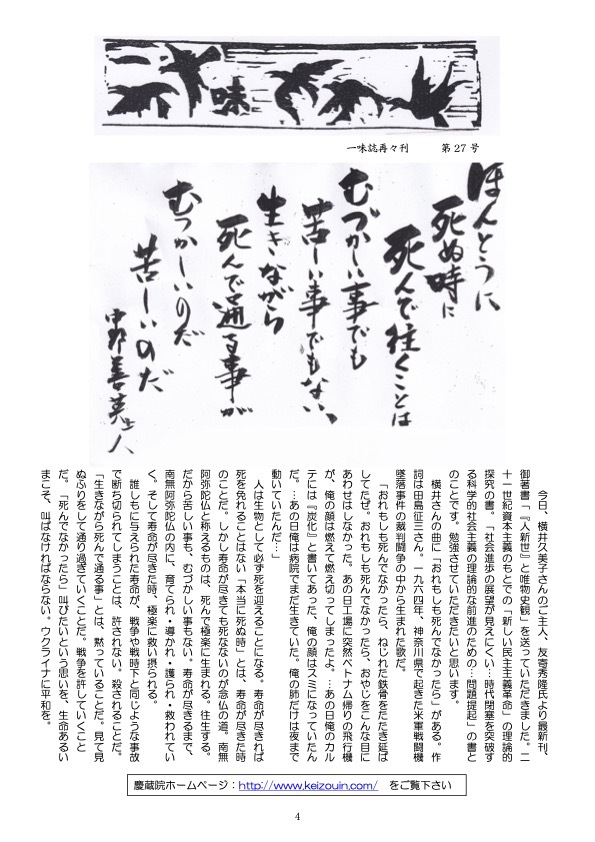 一味
一味誌再々刊　第27号
ほんとうに
死ぬ時に
死んで往くことは
むづかしい事でも
苦しい事でもない。
生きながら
死んで通る事が
むつかしいのだ
苦しいのだ
中野善英上人
今日、横井久美子さんのご主人、友寄秀隆氏より最新刊、
御著書「『人新世』と唯物史観」を送っていただきました。二
十一世紀資本主義のもとでの「新しい民主主義革命」の理論的
探究の書。「社会進歩の展望が見えにくい…時代閉塞を突破す
る科学的社会主義の理論的な前進のための…問題提起」の書と
のことです。勉強させていただきたいと思います。
横井さんの曲に「おれもしも死んでなかったら」がある。作
詞は田島征三さん。一九六四年、神奈川県で起きた米軍戦闘機
墜落事件の裁判闘争の中から生まれた歌だ。
「おれもしも死んでなかったら、ねじれた鉄骨をたたき延ば
してたぜ。おれもしも死んでなかったら、おやじをこんな目に
あわせはしなかった。あの日工場に突然ベトナム帰りの飛行機
が、俺の顔は燃えて燃え切ってしまったよ。…あの日俺のカル
テには『炭化』と書いてあった、俺の顔はスミになっていたん
だ。…あの日俺は病院でまだ生きていた。俺の肺だけは夜まで
動いていたんだ…」
人は生物として必ず死を迎えることになる。寿命が尽きれば
死を免れることはない「本当に死ぬ時」とは、寿命が尽きた時
のことだ。しかし寿命が尽きても死なないのが念仏の道。南無
阿弥陀仏と称えるものは、死んで極楽に生まれる。往生する。
だから苦しい事も、むづかしい事もない。寿命が尽きるまで、
南無阿弥陀仏の内に、育てられ・導かれ・護られ・救われてい
く。そして寿命が尽きた時、極楽に救い摂られる。
誰しもに与えられた寿命が、戦争や戦時下と同じような事故
で断ち切られてしまうことは、許されない。殺されることだ。
「生きながら死んで通る事」とは、黙っていることだ。見て見
ぬふりをして通り過ぎていくことだ。戦争を許していくこと
だ。「死んでなかったら」叫びたいという思いを、生命あるい
まこそ、叫ばなければならない。ウクライナに平和を。
慶蔵院ホームページ：http://www.keizouin.com/　をご覧下さい
4